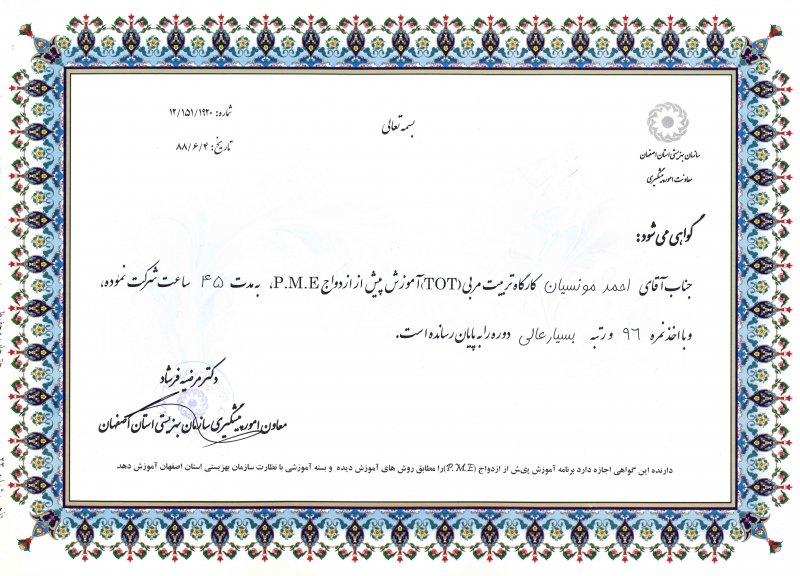 بسمه تعالی
شماره: ۱۲/۱۵۱/۱۹۲۰
تاریخ: ۸۸/۶/۴
سازمان بهزیستی استان اصفهان
معاونت امور پیشگیری
گواهی می شود:
جناب آقای احمد مونسیان کارگاه تربیت مربی (TOT) آموزش پیش از ازدواج P.M.E، به مدت ۴۵ ساعت شرکت نموده،
و با اخذ نمره ۹۶ و رتبه بسیار عالی دوره را به پایان رسانده است.
دکتر مرضیه فرشاد
معاون امور پیشگیری سازمان بهزیستی استان اصفهان
دارنده این گواهی اجازه دارد برنامه آموزش پی‌ش از ازدواج (P.M.E) را مطابق روش های آموزش دیده و بسته آموزشی با نظارت سازمان بهزیستی استان اصفهان آموزش دهد